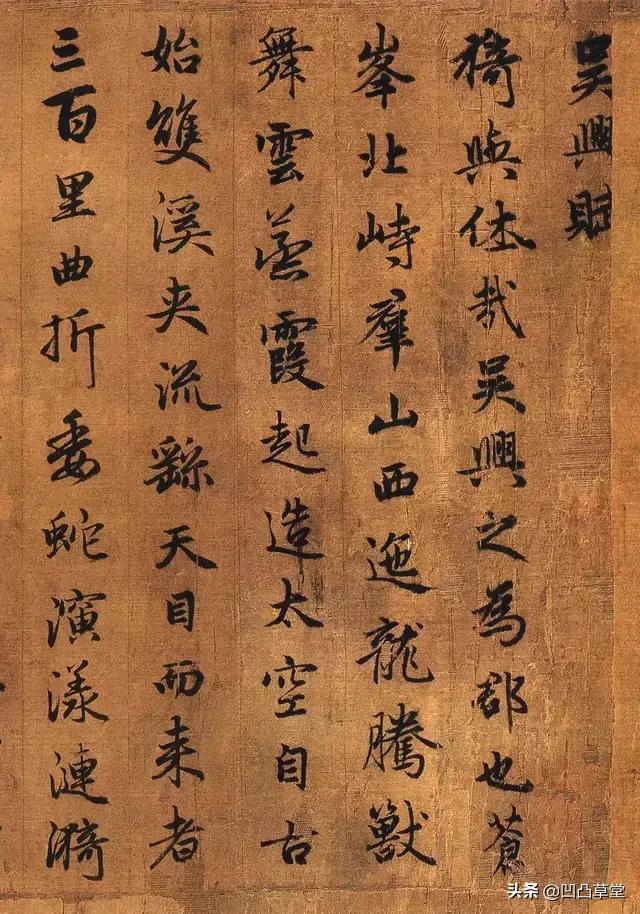 吳興賦
猗與休哉吳興之為郡也蒼
峯北峙羣山西迤龍騰獸
舞雲蒸霞起造太空自古
始雙溪夾流繇天目而来者
三百里曲折委蛇演漾漣漪
头条 @凹凸草堂